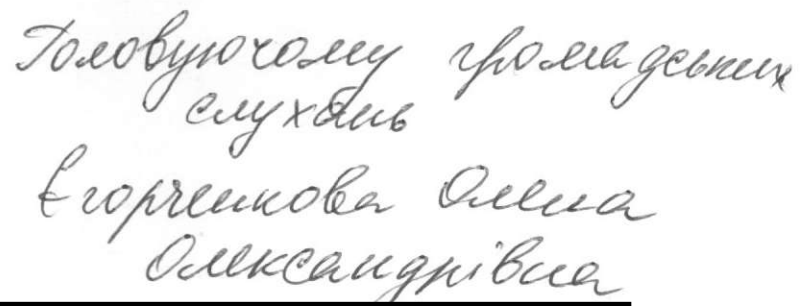 Головуючому громадських
слухань
Єгорченкова Олена
Олександрівна